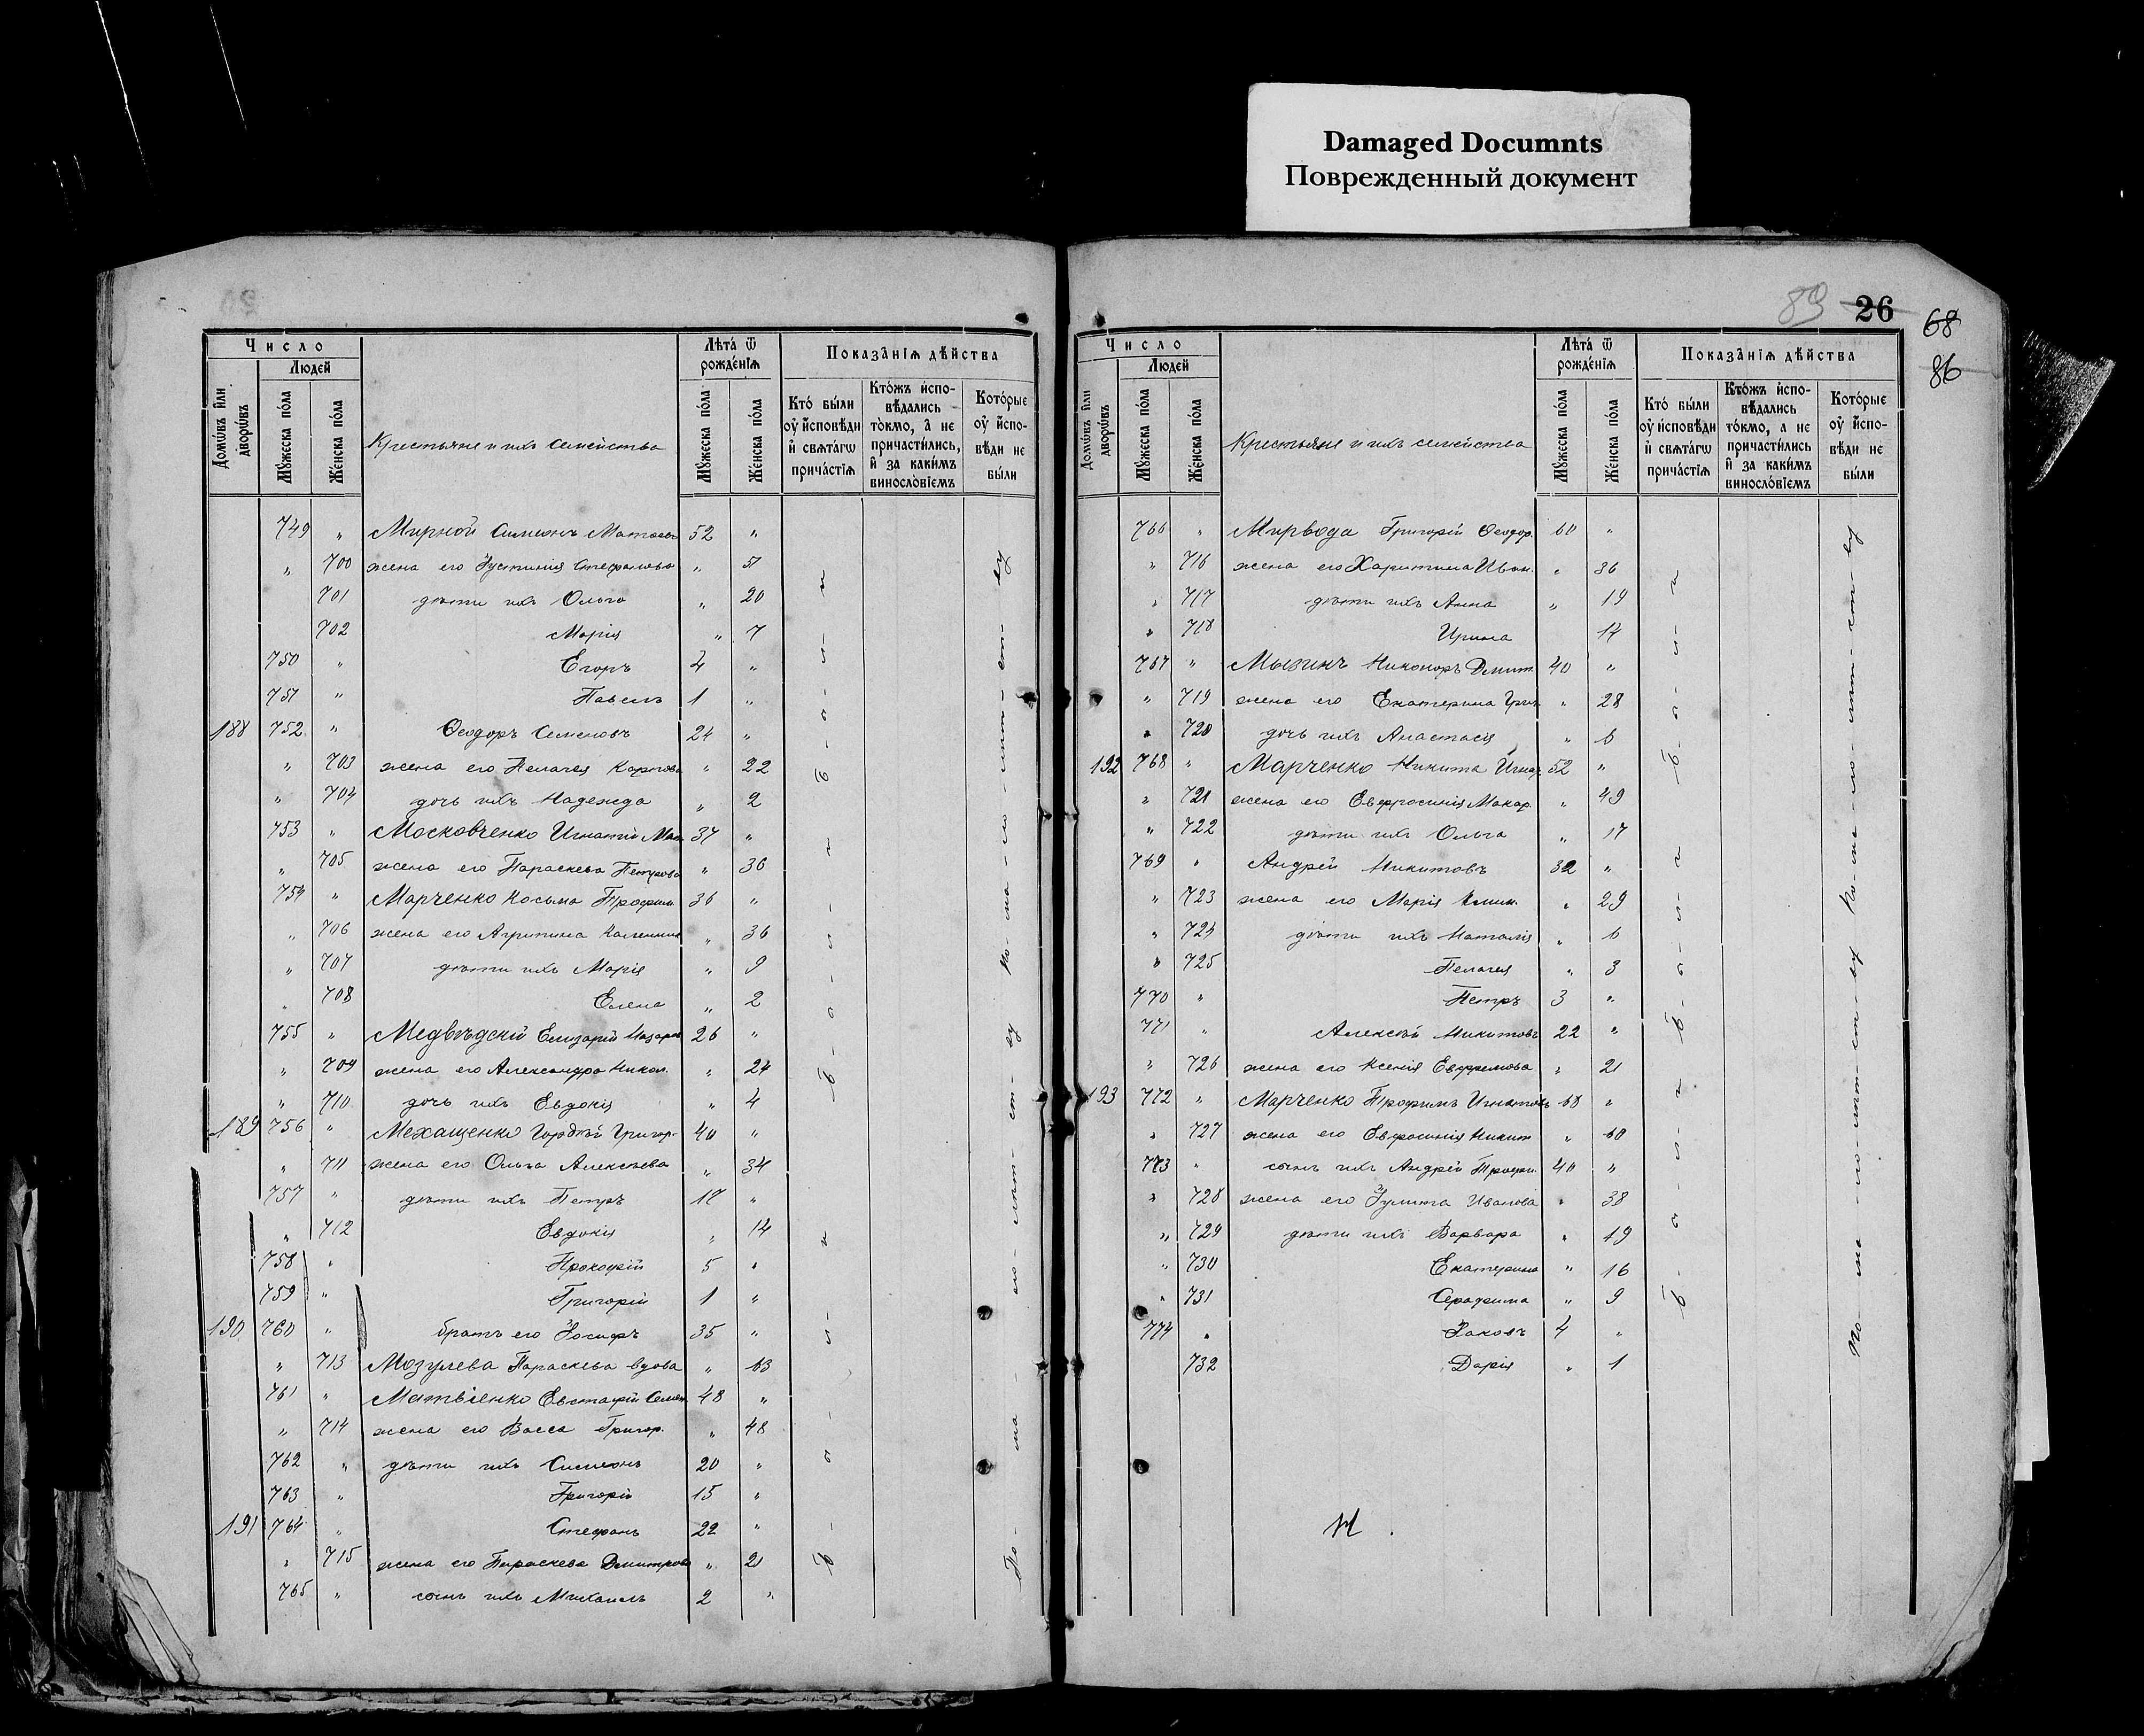 Damaged Documnts
Поврежденный документ
Число
Людей
Домѡвъ и҆лѝ дворѡ́въ
Мꙋ́жеска по́ла
Же́нска по́ла
Крестьяне и ихъ семейства
Лѣта̀ ѿ рожде́нїѧ
Мꙋ́жеска по́ла
Же́нска по́ла
Показа̑нїѧ дѣ́йства
Кто̀ бы́ли оу҆ и҆сповѣди и҆ свѧта́гѡ прича́стїѧ
Кто́жъ и҆спо-вѣдались то́кмо, а҆ не причасти́лись, и҆ за каки́мъ винословїемъ
Кото́рые оу҆ и҆спо-вѣди не бы́ли
749 " Мирной Симеонъ Матвѣевъ 52 "
" 700 жена его Іустинія Стефанова " 51
701 дѣти ихъ Ольга " 20
702 Марія " 7
750 " Егоръ 4 "
751 " Павелъ 1 "
188 752 " Ѳеодоръ Семеновъ 24 "
" 703 жена его Пелагея Карпова " 22
" 704 дочь ихъ Надежда " 2
753 " Московченко Игнатій Мат. 37 "
" 705 жена его Параскева Петрова " 36
754 " Марченко Косьма Трофим. 36 "
" 706 жена его Агрипина " 36
" 707 дѣти ихъ Марія " 9
" 708 Елена " 2
755 " Медвѣдскій Елизарій Назаров 26 "
" 709 жена его Александра Никол. " 24
" 710 дочь ихъ Евдокія " 4
189 756 " Мехащенко Гордѣй Григор. 40 "
" 711 жена его Ольга Алексѣева " 34
757 " дѣти ихъ Петръ 17 "
" 712 Евдокія " 14
758 " Прокофій 5 "
759 " Григорій 1 "
190 760 " братъ его Іосифъ 35 "
" 713 Мозулева Параскева вдова " 63
761 " Матвіенко Евстафій Семен. 48 "
" 714 жена его Васса Григор. " 48
762 " дѣти ихъ Симеонъ 20 "
763 " Григорій 15 "
191 764 " Стефанъ 22 "
" 715 жена его Параскева Дмитрова " 21
765 " сынъ ихъ Михаилъ 2 "
б-ы-л-и
б-ы-л-и
б-ы-л-и
По-ма-ло-лѣт-ст-ву
По-ма-ло-лѣт-ст-ву
89 26
68
86
Число
Людей
Домѡвъ и҆лѝ дворѡ́въ
Мꙋ́жеска по́ла
Же́нска по́ла
Крестьяне и ихъ семейства
Лѣта̀ ѿ рожде́нїѧ
Мꙋ́жеска по́ла
Же́нска по́ла
Показа̑нїѧ дѣ́йства
Кто̀ бы́ли оу҆ и҆сповѣди и҆ свѧта́гѡ прича́стїѧ
Кто́жъ и҆спо-вѣдались то́кмо, а҆ не причасти́лись, и҆ за каки́мъ винословїемъ
Кото́рые оу҆ и҆спо-вѣди не бы́ли
766 " Мирвода Григорій Ѳеодор. 60 "
" 716 жена его Харитина Иван. " 36
" 717 дѣти ихъ Анна " 19
" 718 Ирина 14
767 " Мызинъ Никоноръ Дмит. 40 "
" 719 жена его Екатерина Григ. " 28
" 720 дочь ихъ Анастасія " 6
192 768 " Марченко Никита Игнат. 52 "
" 721 жена его Евфросинія Макар. " 49
" 722 дѣти ихъ Ольга " 17
769 " Андрей Никитовъ 32 "
" 723 жена его Марія Клим. " 29
" 724 дѣти ихъ Наталія " 6
" 725 Пелагея " 3
770 " Петръ 3 "
771 " Алексѣй Никитовъ 22 "
" 726 жена его Ксенія Евфремова " 21
193 772 " Марченко Трофимъ Игнатовъ 68 "
" 727 жена его Евфросинія Никит. " 60
773 " сынъ ихъ Андрей Трофи. 40 "
" 728 жена его Іулита Иванова " 38
" 729 дѣти ихъ Варвара " 19
" 730 Екатерина " 16
" 731 Серафима " 9
774 " Іаковъ 4 "
732 Дарія " 1
б-ы-л-и
б-ы-л-и
б-ы-л-и
По-ма-ло-лѣт-ст-ву
По-ма-ло-лѣт-ст-ву